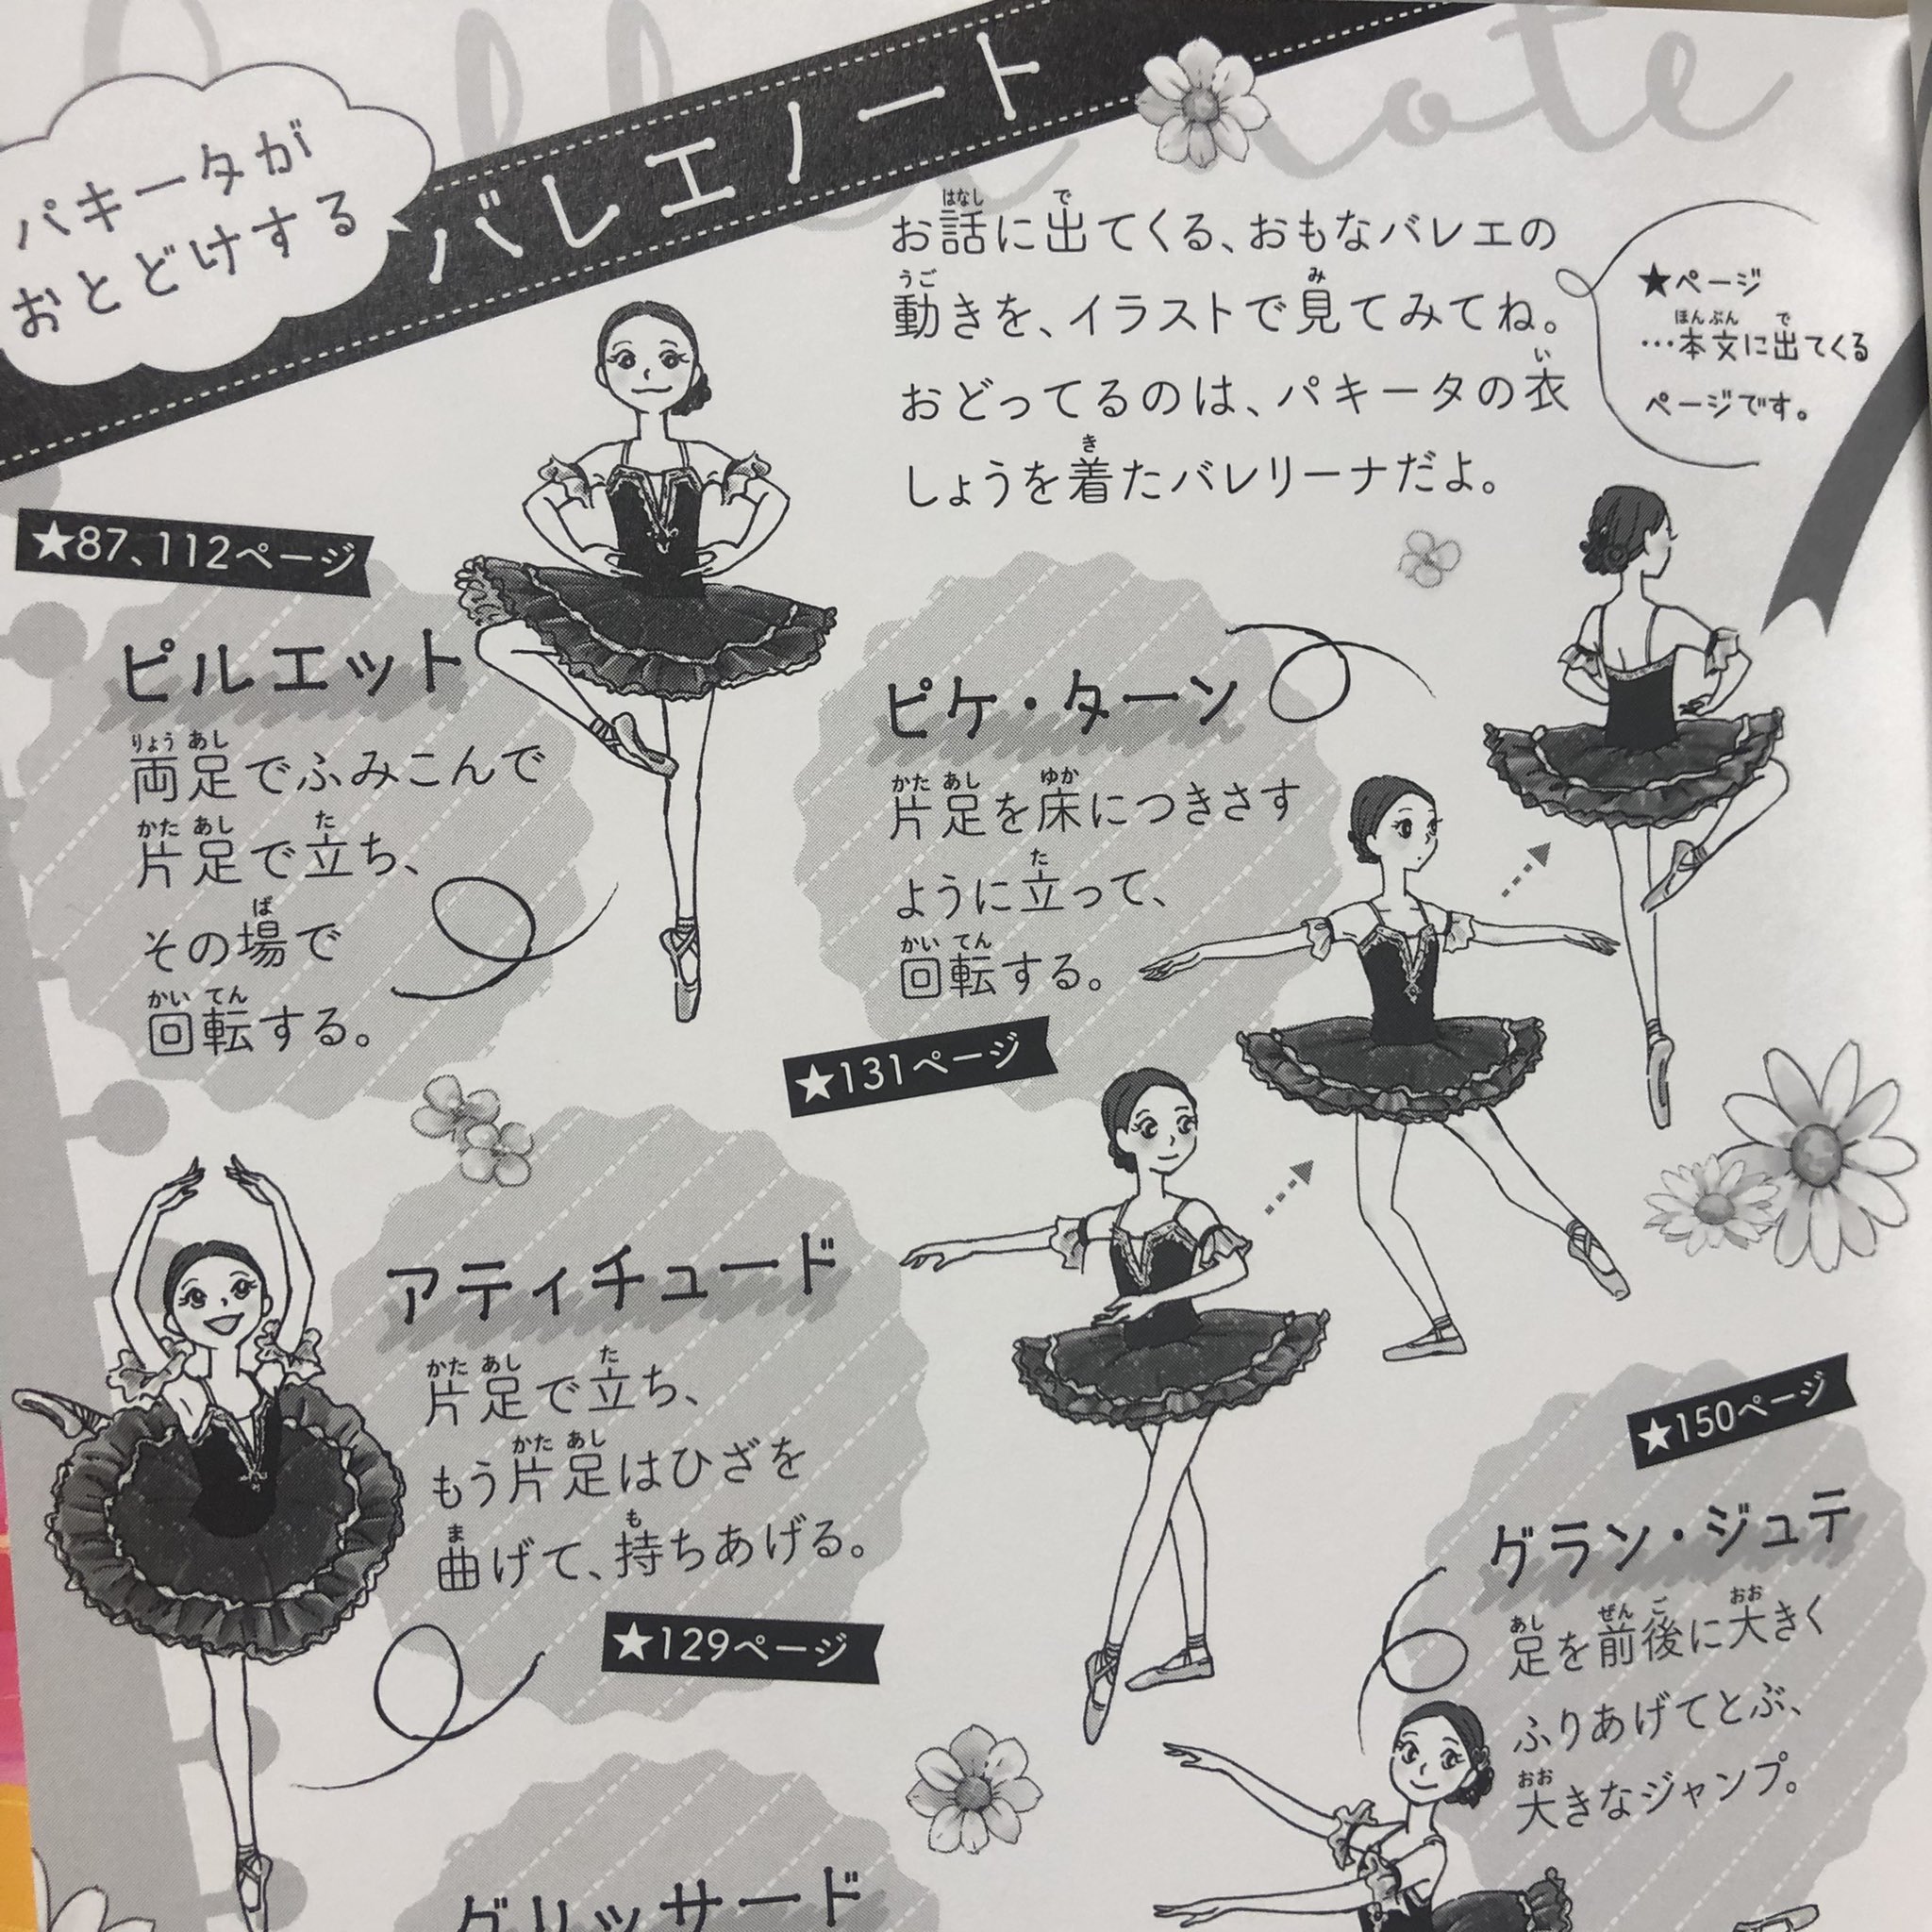 Ballet Note
パキータが
おとどけする
バレエノート
お話に出てくる、おもなバレエの
動きを、イラストで見てみてね。
おどってるのは、パキータの衣
しょうを着たバレリーナだよ。
★ページ
…本文に出てくる
ページです。
★87、112ページ
ピルエット
両足でふみこんで
片足で立ち、
その場で
回転する。
ピケ・ターン
片足を床につきさす
ように立って、
回転する。
★131ページ
アティチュード
片足で立ち、
もう片足はひざを
曲げて、持ちあげる。
★129ページ
★150ページ
グラン・ジュテ
足を前後に大きく
ふりあげてとぶ、
大きなジャンプ。
グリッサード